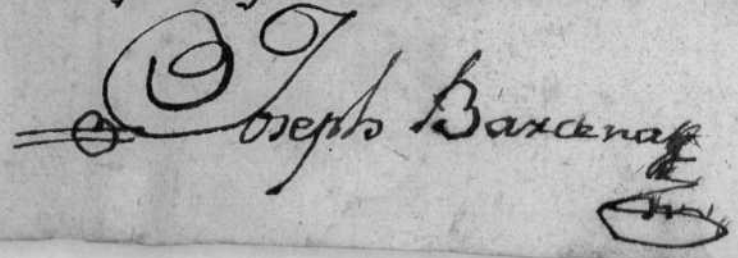 Joseph Barcena